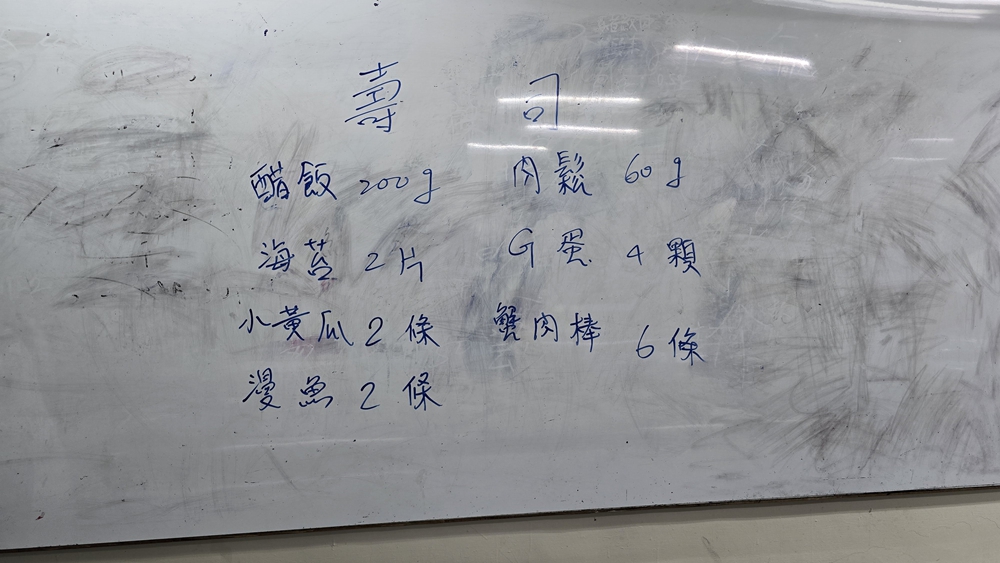 壽司
醋飯 200g
海苔 2片
小黃瓜 2條
漫魚 2條
肉鬆 60g
G蛋 4顆
蟹肉棒 6條